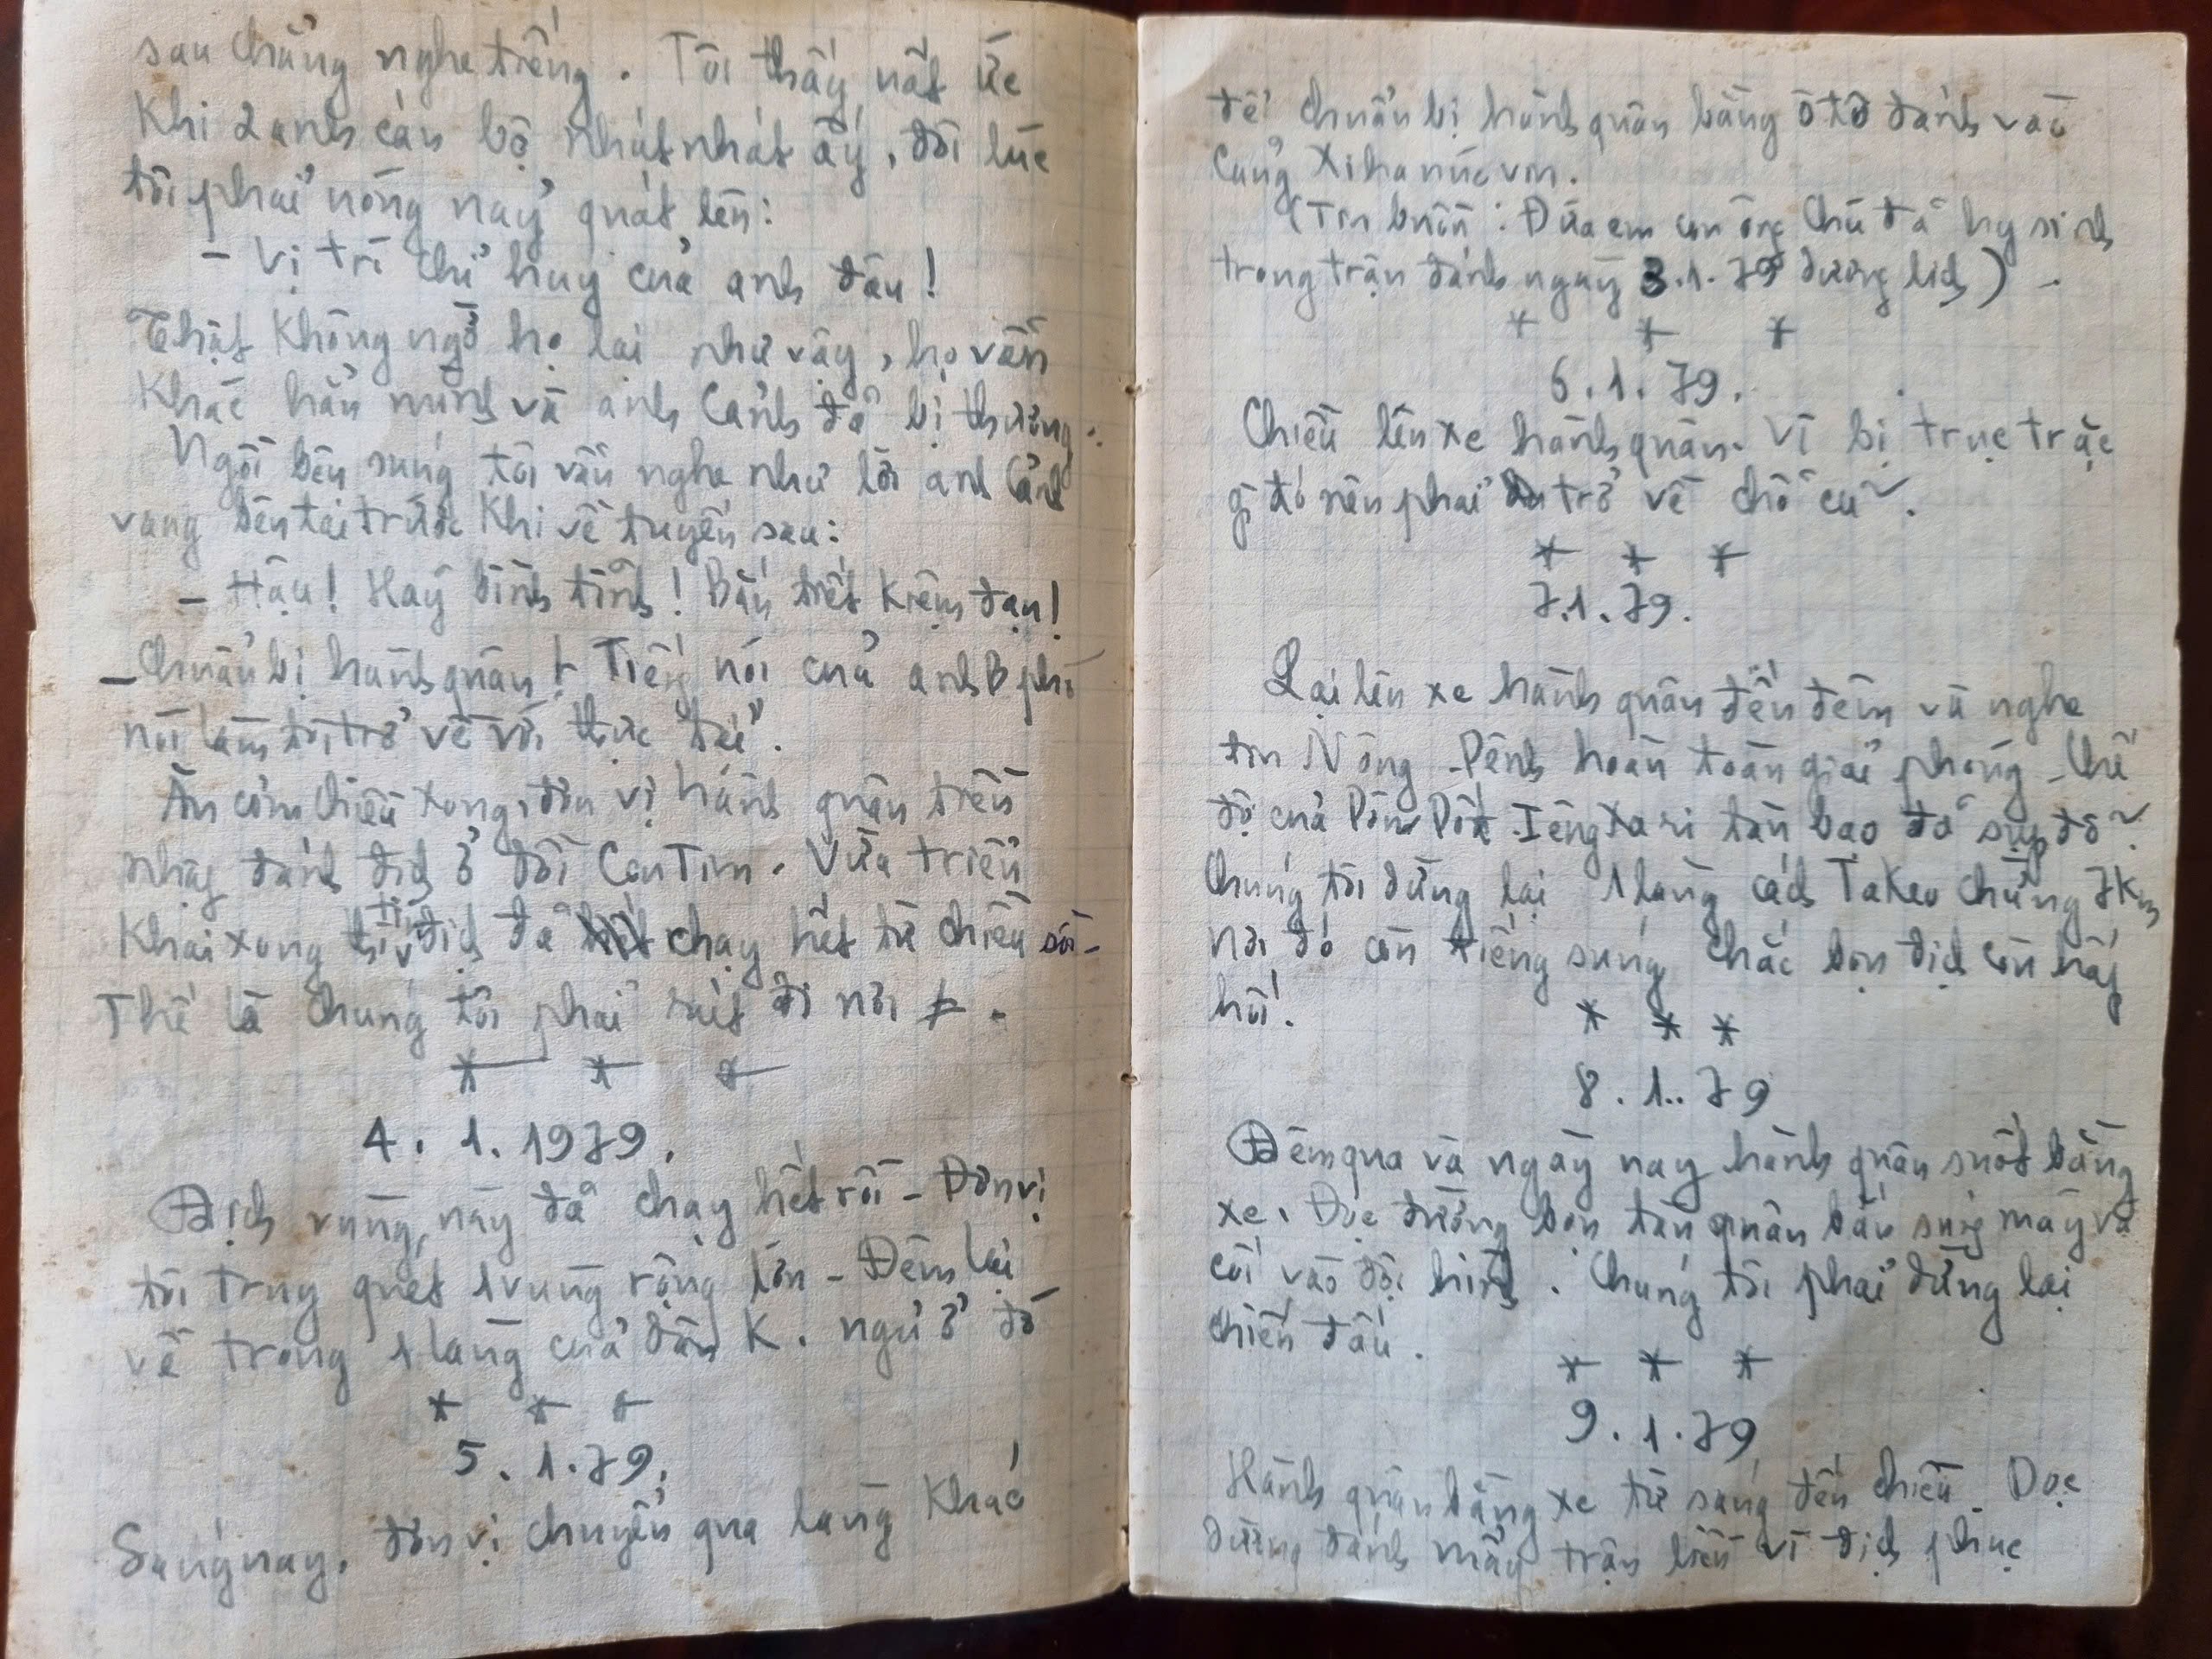 sau chẳng nghe tiếng. Tôi thấy nất ức
Khi 2 anh cán bộ nhát nhát ấy, đôi lúc
tôi phải nóng nảy quát lên:
- Vị trí chỉ huy của anh đâu!
Thật không ngờ họ lại như vậy, họ vẫn
Khác hẳn mình và anh Cảnh đã bị thương.
Ngồi bên súng tôi vẫn nghe như lời anh Cảnh
vang bên tai trước khi về tuyến sau:
- Hậu! Hãy bình tĩnh! Bắn tiết kiệm đạn!
- Chuẩn bị hành quân! Tiếng nói của anh B phó
nói làm tôi trở về với thực tại.
Ăn cơm chiều xong, đơn vị hành quân tiến
nhây đánh địch ở đồi ConTim. Vừa triển
Khai xong thì địch đã chạy hết từ chiều rồi-
Thế là chúng tôi phải rút đi nơi #.
* * *
4. 1. 1979.
Địch vùng này đã chạy hết rồi - Đơn vị
tôi truy quét 1 vùng rộng lớn - Đêm lại
về trong 1 làng của dân K. ngủ ở đó
* * *
5. 1. 79.
Sáng nay, đơn vị chuyển qua làng khác
để chuẩn bị hành quân bằng ô tô đánh vào
cảng Xihanúcvin.
(Tin buồn: Đứa em con ông chú đã hy sinh
trong trận đánh ngày 3.1.79 dương lịch) -
* * *
6. 1. 79.
Chiều lên xe hành quân. Vì bị trục trặc
gì đó nên phải trở về chỗ cũ.
* * *
7.1. 79.
Lại lên xe hành quân đến đêm và nghe
tin Nông-Pênh hoàn toàn giải phóng - Chế
độ của Pôn Pốt Iêngxari tàn bạo đã sụp đổ.
Chúng tôi dừng lại 1 làng cách TaKeo chừng 7Km
nơi đó còn tiếng súng chắc bọn địch còn hấp
hối.
* * *
8. 1.. 79
Đêm qua và ngày nay hành quân suốt bằng
xe. Dọc đường bọn tàn quân bắn súng máy và
cối vào đội hình. Chúng tôi phải dừng lại
chiến đấu.
* * *
9. 1. 79
Hành quân bằng xe từ sáng đến chiều - Dọc
đường đánh mấy trận liền vì địch phục